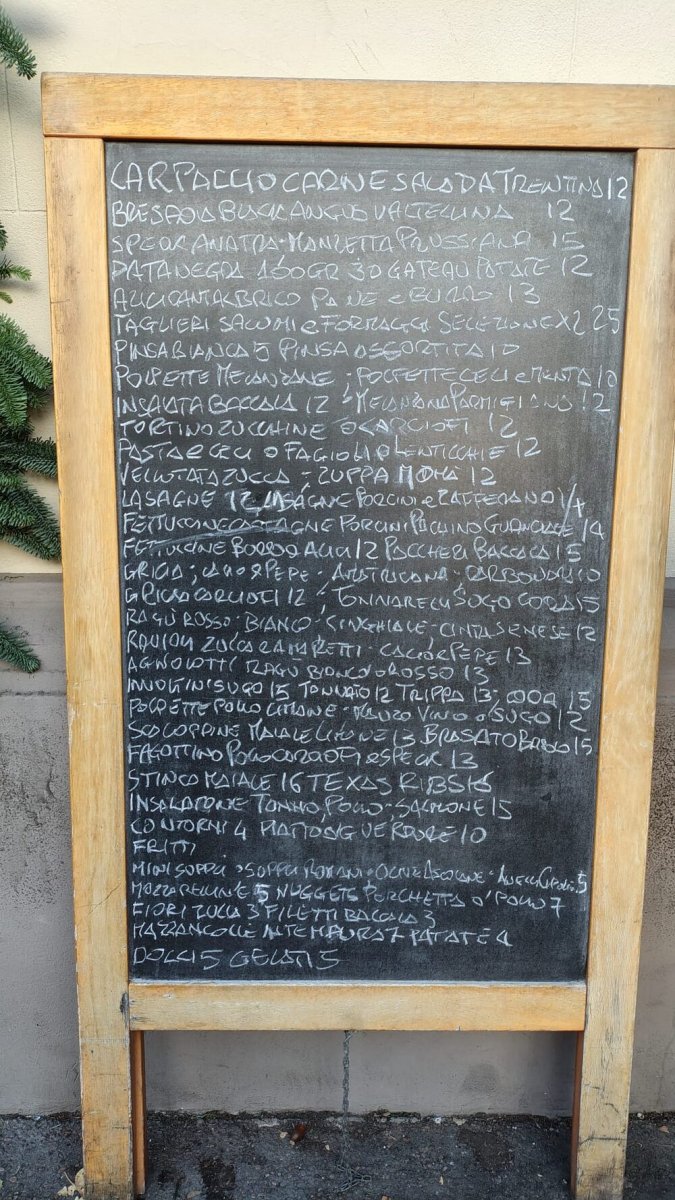 CARPACCIO CARNE SALADA TRENTINO 12
BRESAOLA BLACK ANGUS VALTELLINA 12
SPECK ANATRA - MANZETTA PRUSSIANA 15
PATANEGRA 100GR 30 GATEAU PATATE 12
ALICI CANTABRICO PANE e BURRO 13
TAGLIERI SALUMI e FORMAGGI SELEZIONE X2 25
PINSA BIANCA 5 PINSA 10
POLPETTE MELANZANE ; POLPETTE CECI e MENTA 10
INSALATA BACCALA 12 - MELANZANA PARMIGIANA 12
TORTINO ZUCCHINE O CARCIOFI 12
PASTA e CECI O FAGIOLI O LENTICCHIE 12
VELLUTATA ZUCCA - ZUPPA 12
LASAGNE 12 LASAGNE PORCINI e ZAFFERANO 14
FETTUCCINE CASTAGNE PORCINI PACHINO GUANCIALE 14
FETTUCCINE BURRO ALICI 12 PACCHERI BACCALA 15
GRICIA ; CACIO e PEPE - AMATRICIANA - CARBONARA 10
GRICIA CARCIOFI 12 ; TONNARELLI SUGO CODA 15
RAGÙ ROSSO - BIANCO - CINGHIALE - CINTA SENESE 12
RAVIOLI ZUCCA AMARETTI - CACIO e PEPE 13
AGNOLOTTI RAGÙ BIANCO O ROSSO 13
INVOLTINI SUGO 15 TONNATO 12 TRIPPA 13 - CODA 15
POLPETTE POLLO LIMONE - MANZO VINO O SUGO 12
SCALOPPINE MAIALE LIMONE 13 BRASATO BAROLO 15
FAGOTTINO POLLO CARCIOFI e SPECK 13
STINCO MAIALE 16 TEXAS RIBS 16
INSALATONE TONNO, POLLO - SALMONE 15
CONTORNI 4 PIATTO DI VERDURE 10
FRITTI
MINI SUPPLI - SUPPLI ROMANI - OLIVE ASCOLANE - 5
MOZZARELLINE 5 NUGGETS PORCHETTA O POLLO 7
FIORI ZUCCA 3 FILETTI BACCALA 3
MAZZANCOLLE IN TEMPURA 7 PATATE 4
DOLCI 5 GELATI 5